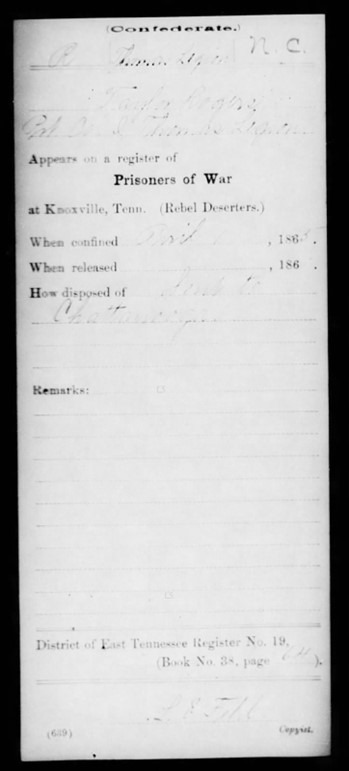 (Confederate.)
R Thomas Legion N. C.
Taylor Rogers
Pvt Co. Thomas Legion
Appears on a register of
Prisoners of War
at Knoxville, Tenn. (Rebel Deserters.)
When confined April , 1865.
When released , 186 .
How disposed of Sent to
Chattanooga
Remarks:
District of East Tennessee Register No. 19,
(Book No. 38, page 64 ).
(639) Copyist.